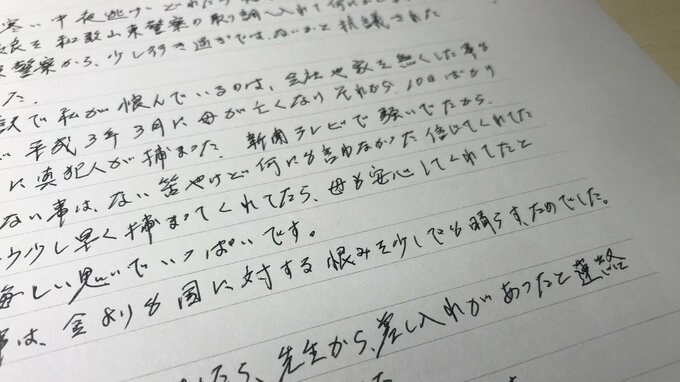 寒い中夜逃げ
を和歌山東警察の取り調
警察から、少し行き過ぎではないかと抗議された
た。
で私が恨んでいるのは、会社や家を無くした事も
平成3年3月に母が亡くなりそれから、10日ばかり
に真犯人が捕まった。新聞テレビで騒いでたから、
ない事は、ない筈やけど何にも言わなかった信じてくれてた
う少し早く捕まってくれてたら、母も安心してくれてたと
悔しい思いでいっぱいです。
は、金よりも国に対する恨みを少しでも晴らすためでした。
たら、先生から、差し入れがあったと連絡